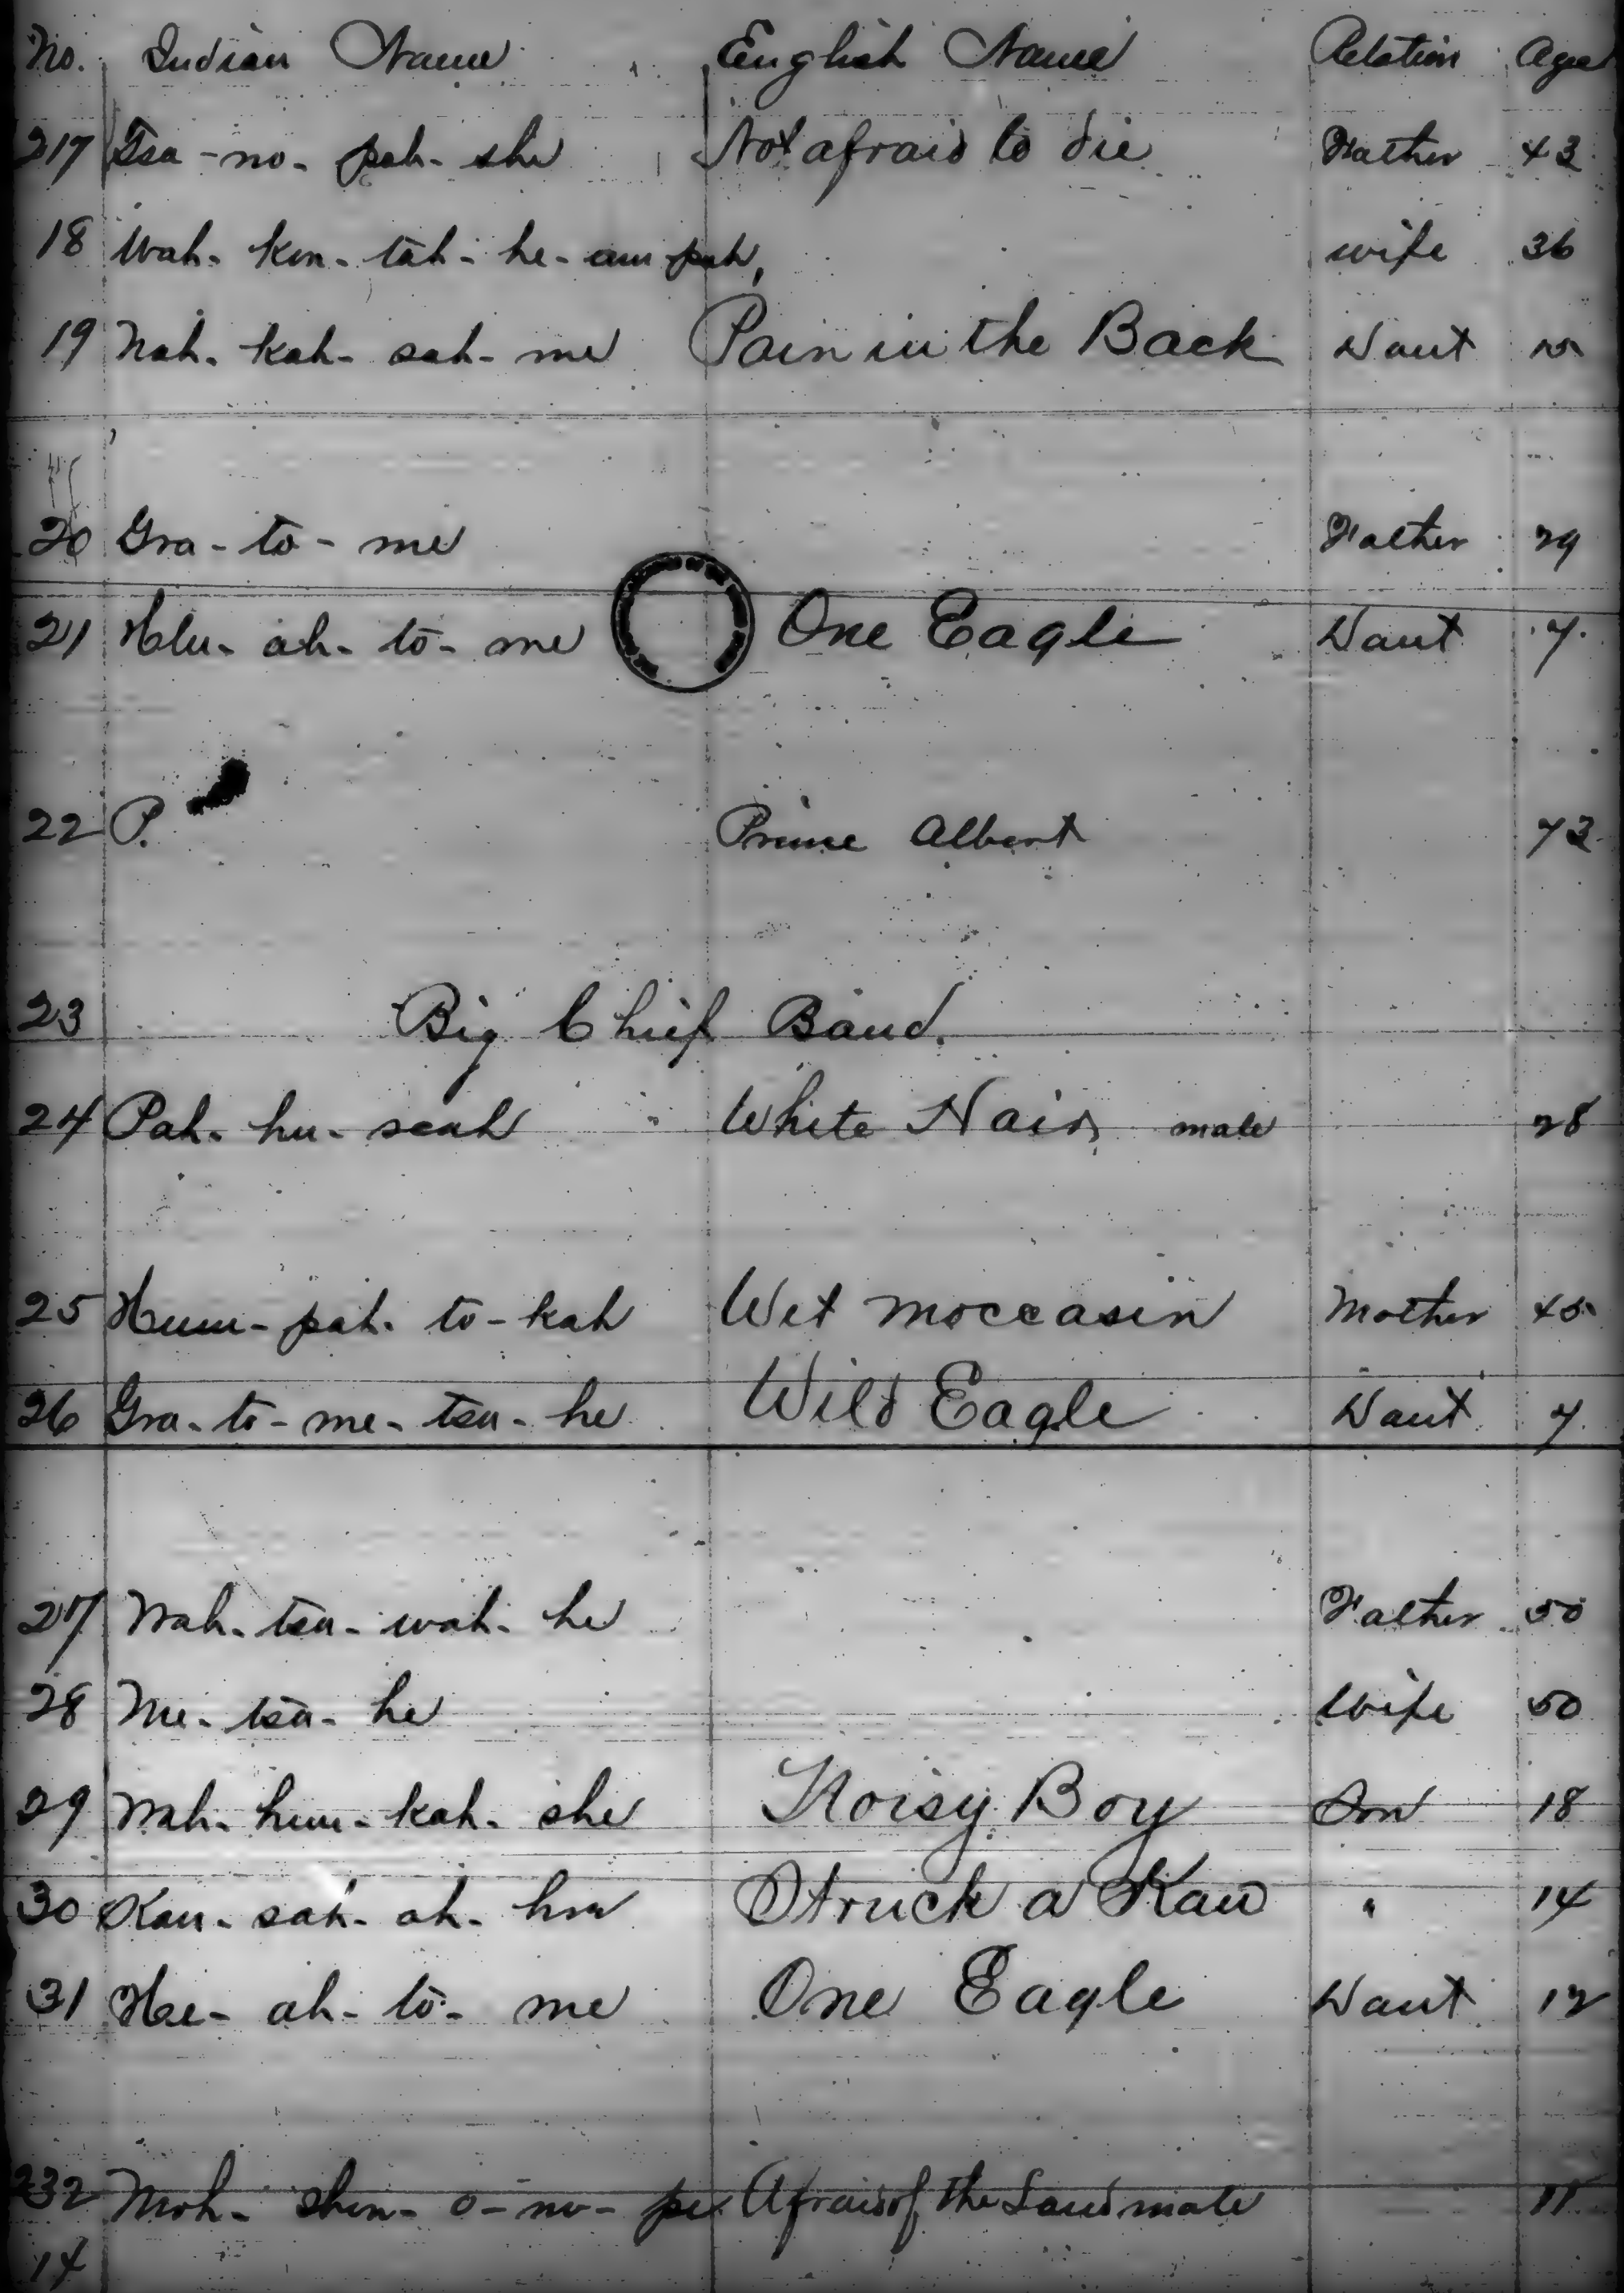 No. Indian Name English Name Relation Age
217 Tsa-no-pah-she Not afraid to die Father 43
18 Wah-kon-tah-he-um-pah, wife 36
19 Nah-kah-sah-me Pain in the Back Daut
20 Gra-to-me Father 29
21 Hlu-ah-to-me One Eagle Daut 7
22 P. Prince Albert 73
23 Big Chief Band.
24 Pah-hu-scah White Hair, male 28
25 Hum-pah-to-kah Wet moccasin Mother 45
26 Gra-to-me-tsa-he Wild Eagle Daut 7
27 Wah-tsa-wah-he Father 50
28 Me-tsa-he Wife 50
29 Wah-hum-kah-she Noisy Boy Son 18
30 Kau-sah-ah-hra Struck a Kaw " 14
31 Hse-ah-to-me One Eagle Daut 12
232 Moh-shon-o-no-pe Afraid of the Land male 11
14